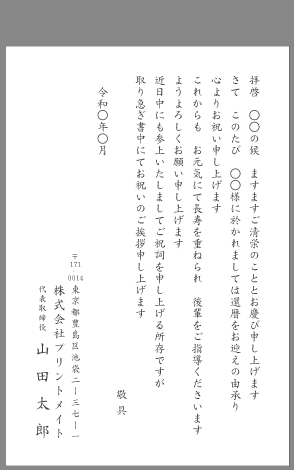 拝啓　〇〇の候　ますますご清栄のこととお慶び申し上げます
さて　このたび　〇〇様に於かれましては還暦をお迎えの由承り
心よりお祝い申し上げます
これからも　お元気にて長寿を重ねられ　後輩をご指導くださいます
ようよろしくお願い申し上げます
近日中にも参上いたしましてご祝詞を申し上げる所存ですが
取り急ぎ書中にてお祝いのご挨拶申し上げます
敬具
令和〇年〇月
〒171-0014
東京都豊島区池袋二ー三七ー一
株式会社プリントメイト
代表取締役　山田太郎